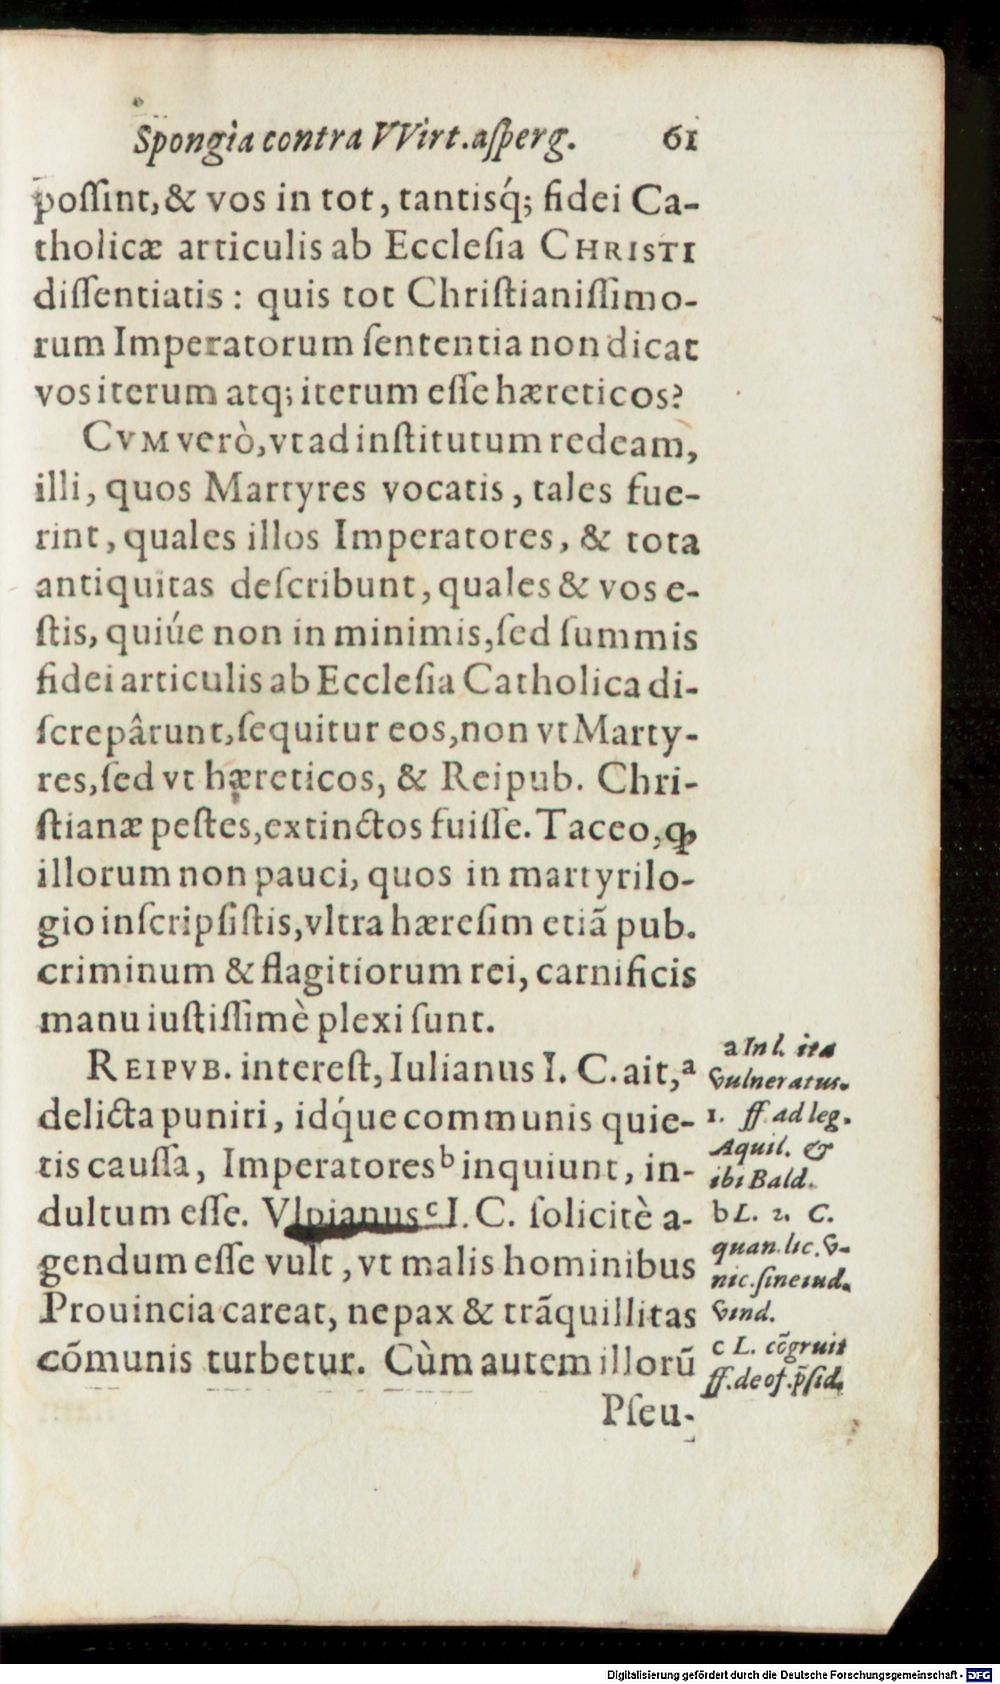 Spongia contra VVirt.aſperg. 61
poſſint,& vos in tot, tantisq́; fidei Ca-
tholicæ articulis ab Eccleſia CHRISTI
diſſentiatis: quis tot Chriſtianiſſimo-
rum Imperatorum ſententia non dicat
vos iterum atq; iterum eſſe hæreticos?
CVM verò,vt ad inſtitutum redeam,
illi, quos Martyres vocatis, tales fue-
rint, quales illos Imperatores, & tota
antiquitas deſcribunt, quales & vos e-
ſtis, quiúe non in minimis,ſed ſummis
fidei articulis ab Eccleſia Catholica di-
ſcrepârunt,ſequitur eos,non vt Marty-
res,ſed vt hæreticos, & Reipub. Chri-
ſtianæ peſtes,extinctos fuiſſe. Taceo,ꝙ
illorum non pauci, quos in martyrilo-
gio inſcripſiſtis,vltra hæreſim etiã pub.
criminum & flagitiorum rei, carnificis
manu iuſtiſſimè plexi ſunt.
REIPVB. intereſt, Iulianus I. C. ait,ᵃ
delicta puniri, idq́ue communis quie-
tis cauſſa, Imperatoresᵇ inquiunt, in-
dultum eſſe. Vlpianusᶜ I. C. ſolicitè a-
gendum eſſe vult, vt malis hominibus
Prouincia careat, ne pax & trãquillitas
cõmunis turbetur. Cùm autem illorũ
Pſeu-
a In l. ita
vulneratus.
1. ff. ad leg.
Aquil. &
ibi Bald.
b L. 2. C.
quan. lic. v-
nic. ſine iud.
vind.
c L. cõgruit
ff. de of. p̃ſid.
Digitalisierung gefördert durch die Deutsche Forschungsgemeinschaft - DFG